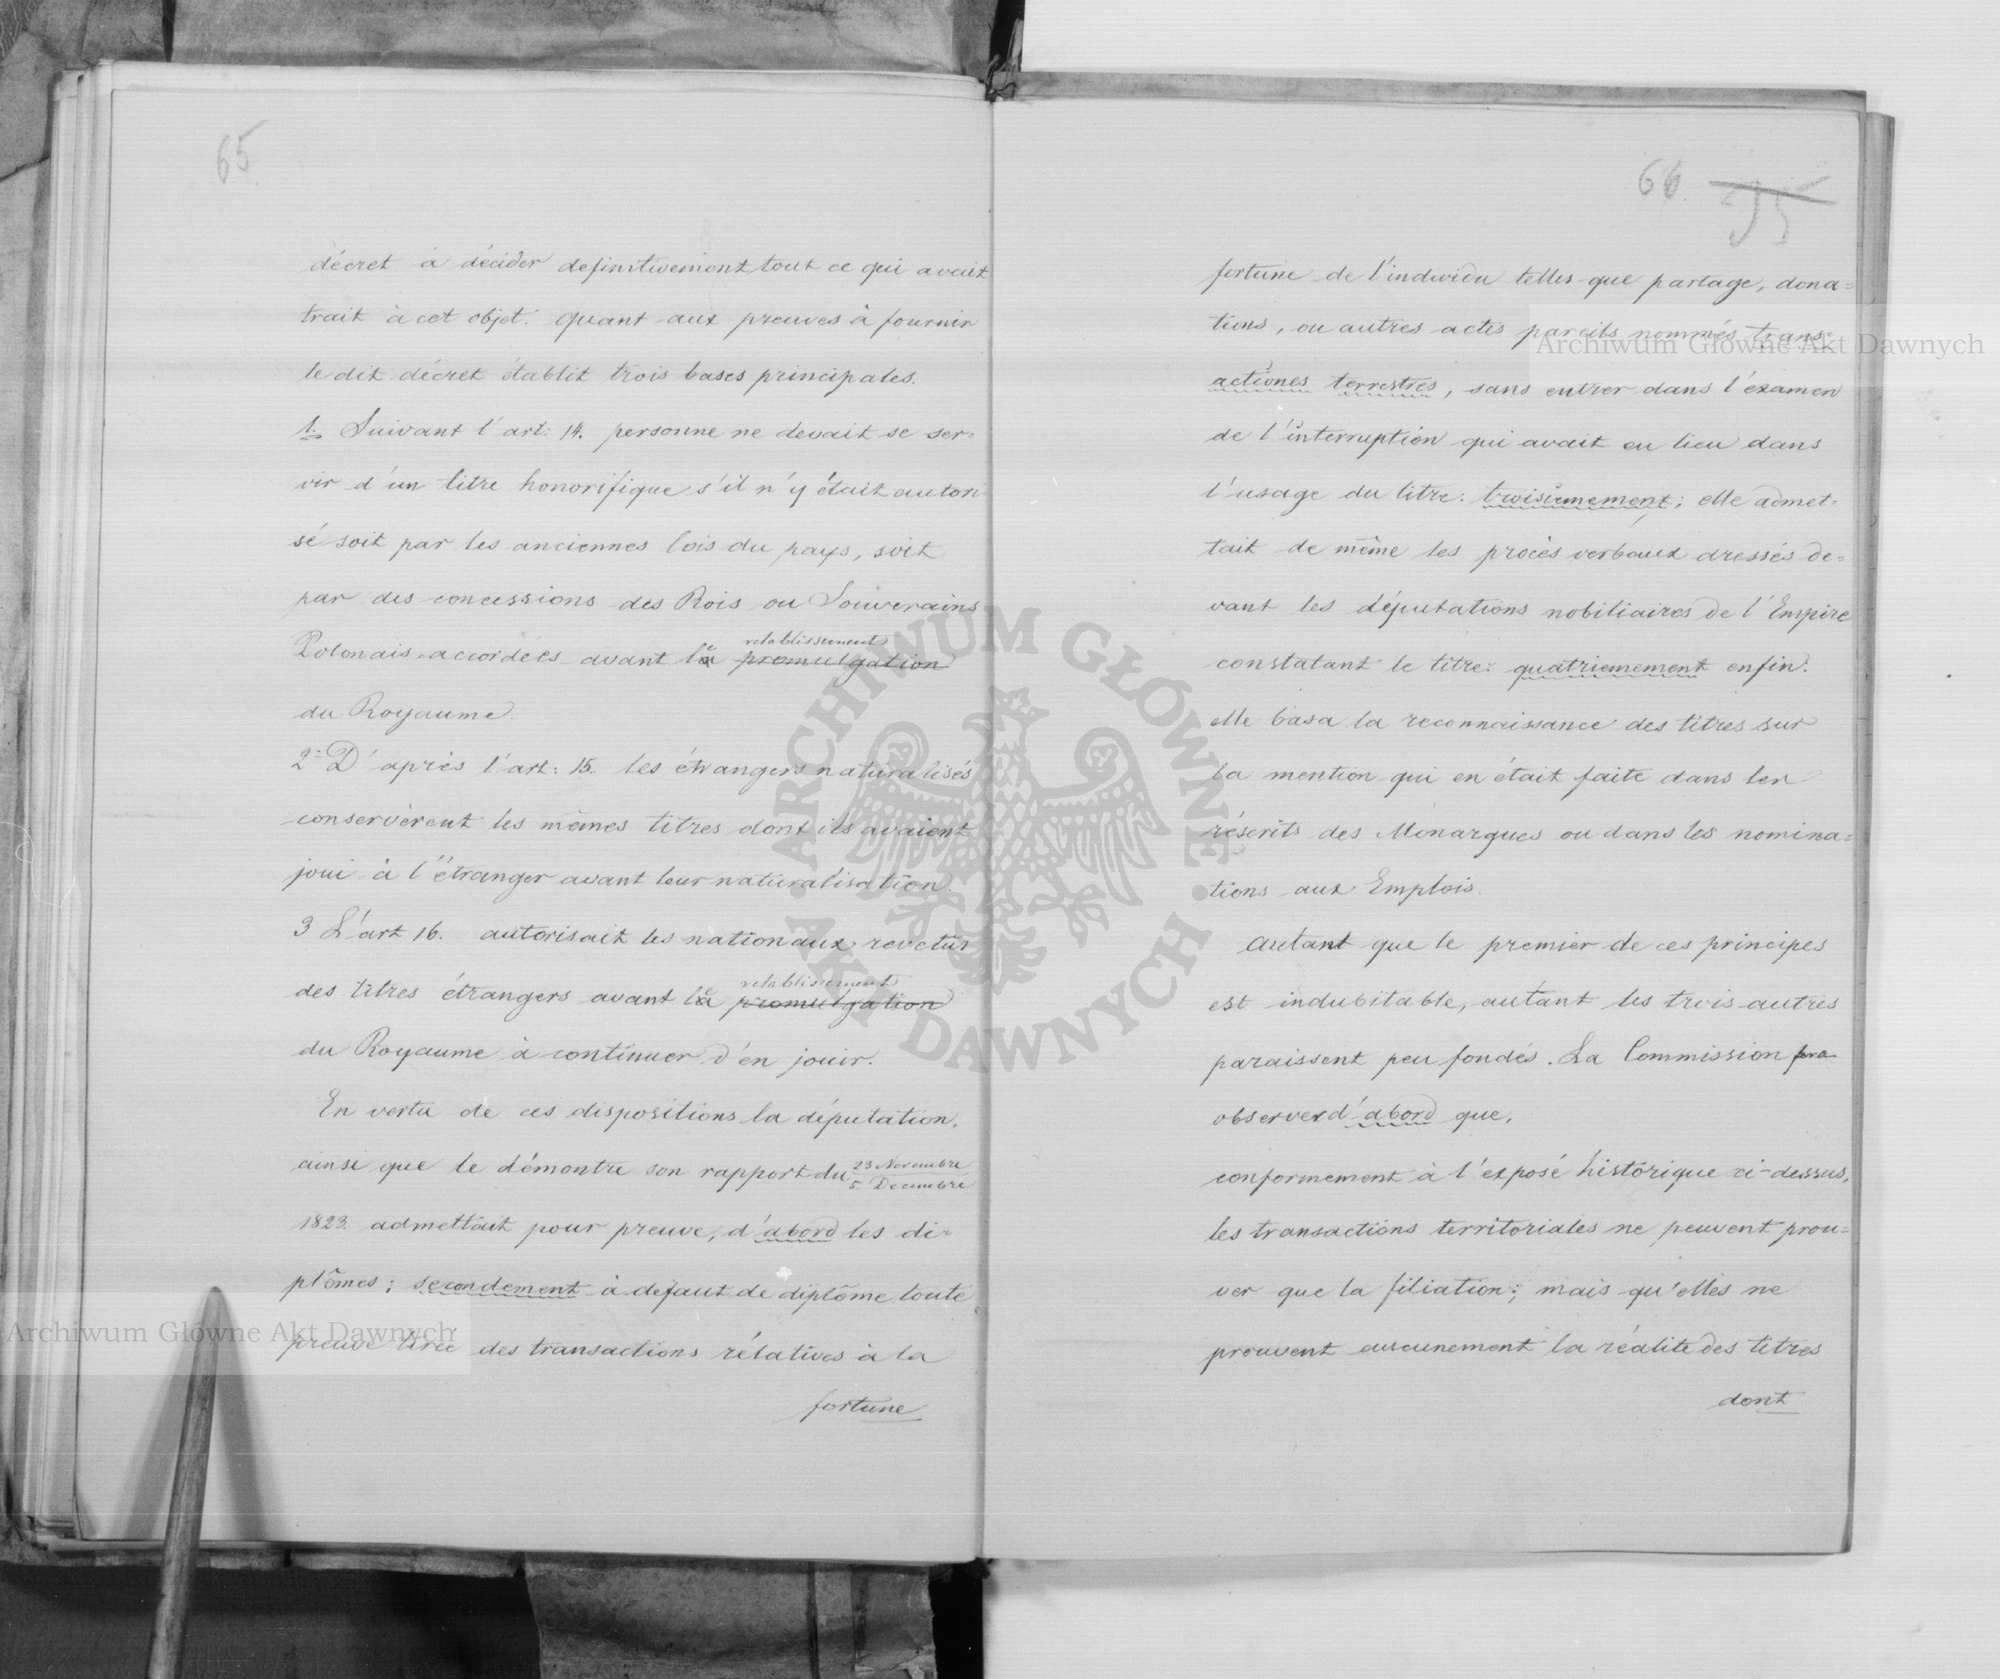 65
décret à décider definitivement tout ce qui avait
trait à cet objet. quant aux preuves à fournir
le dit décret établit trois bases principales.
1. Suivant l'art: 14. personne ne devait se ser=
vir d'un titre honorifique s'il n'y était autori
sé soit par les anciennes lois du pays, soit
par des concessions des Rois ou Souverains
retablissement
Polonais accordées avant la promulgation
du Royaume.
2 D'après l'art: 15. les étrangers naturalisés
conservèrent les mêmes titres dont ils avaient
joui à l'étranger avant leur naturalisation.
3 L'art 16. autorisait les nationaux revetus
retablissement
des titres étrangers avant la promulgation
du Royaume à continuer d'en jouir.
En vertu de ces dispositions la députation,
ainsi que le démontre son rapport du 23 Novembre
5. Decembre
1823. admettait pour preuve, d'abord les di-
plômes; secondement à defaut de diplôme toute
preuve tirée des transactions rélatives à la
fortune
66. 35
fortune de l'individu telles que partage, dona=
tions, ou autres actes pareils nommés trans-
actiones terrestres, sans entrer dans l'éxamen
de l'interruption qui avait eu lieu dans
l'usage du titre: troisiemement; elle admet-
tait de même les procès verbaux dressés de=
vant les députations nobiliaires de l'Empire
constatant le titre: quatriemement enfin:
elle basa la reconnaissance des titres sur
la mention qui en était faite dans les
réscrits des Monarques ou dans les nomina=
tions aux Emplois.
autant que le premier de ces principes
est indubitable, autant les trois autres
paraissent peu fondés. La Commission fera
observer d'abord que,
conformement à l'exposé historique ci-dessus,
les transactions territoriales ne peuvent prou=
ver que la filiation; mais qu'elles ne
prouvent aucunement la réalité des titres
dont
Archiwum Główne Akt Dawnych
Archiwum Główne Akt Dawnych
A. ARCHIWUM GŁÓWNE. AKT DAWNYCH.